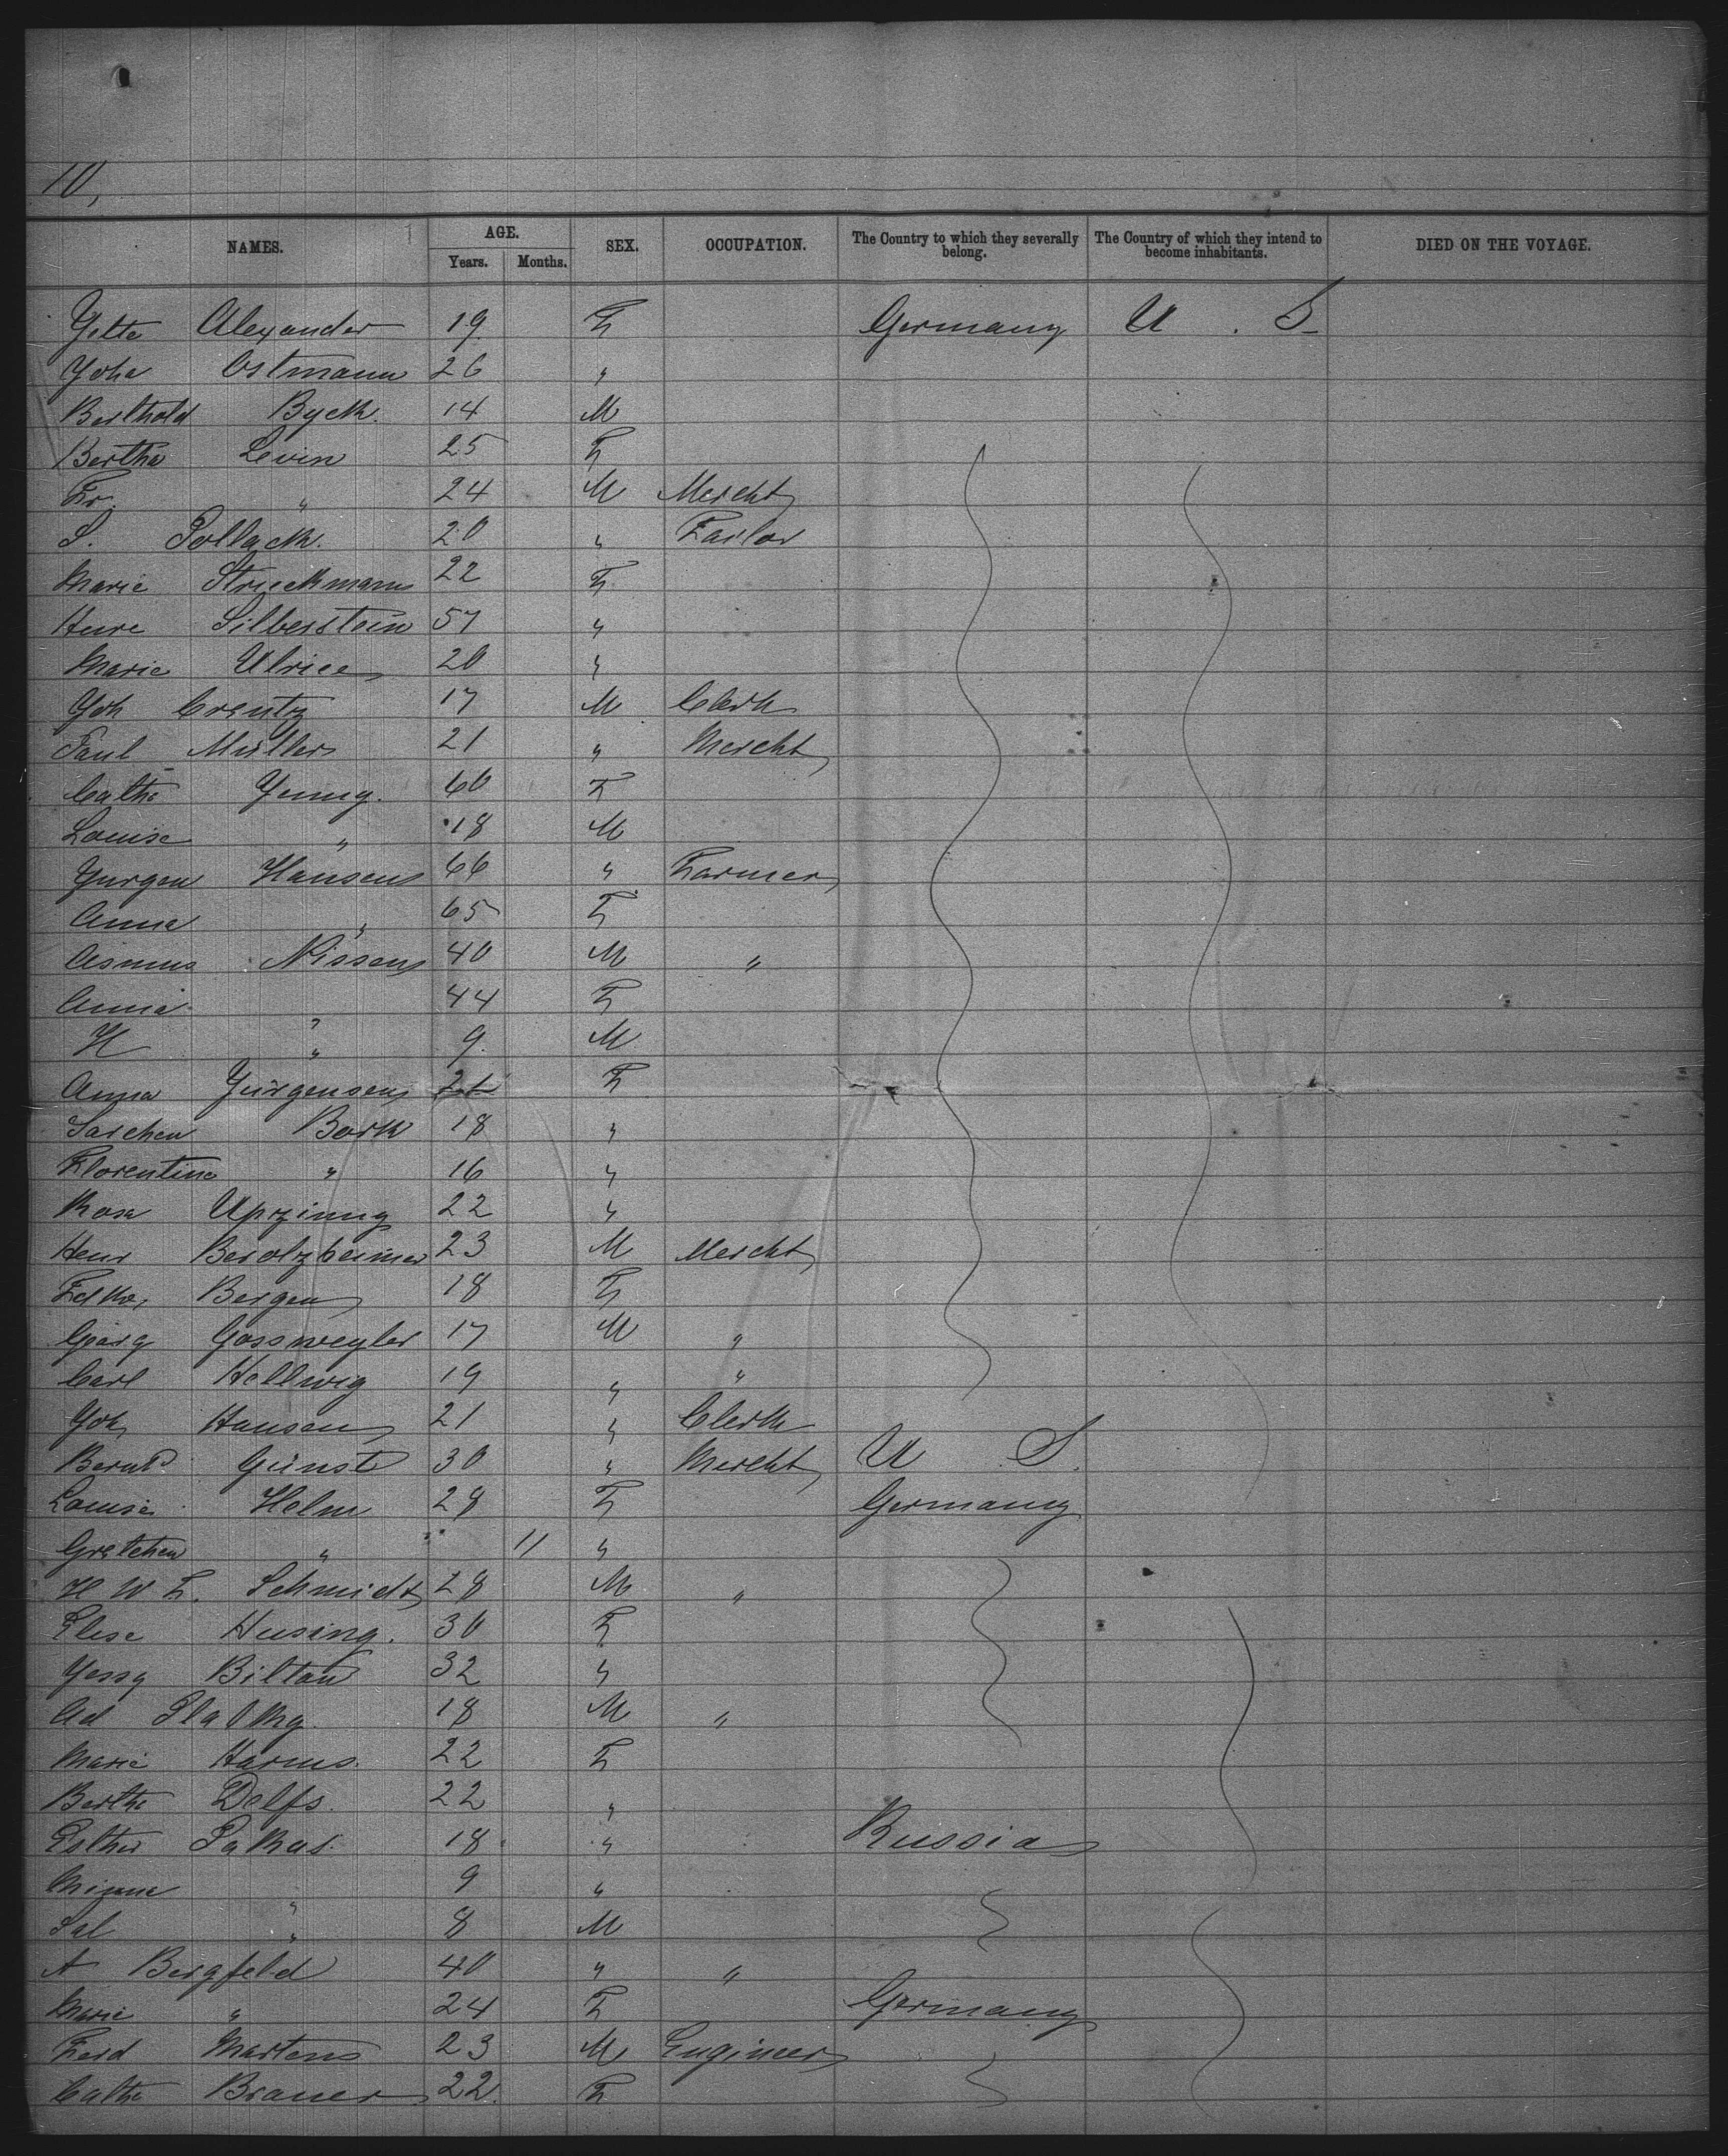 10,
NAMES. AGE. SEX. OCCUPATION. The Country to which they severally belong. The Country of which they intend to become inhabitants. DIED ON THE VOYAGE.
Years. Months.
Yette Alexander 19 F Germany U. S.
Joha Ostmann 26 "
Berthold Byck. 14 M
Bertha Levin 25 F
Fr. " 24 M Mercht
S. Pollack. 20 " Tailor
Marie Struckmann 22 F
Silberstein 57 "
Marie Ulrice 20 "
Joh Creutz 17 M Clerk
Paul Müller 21 " Mercht
Cathe Jung. 60 F
Louise " 18 M
Jurgen Hansen 66 " Farmer
Anna " 65 F
Asmus Nissen 40 M "
Anna " 44 F
H " 9 M
Anna Jürgensen F
Bork 18 "
Florentine " 16 "
Rosa 22 "
Henr Berolzheimer 23 M Mercht
Bergen 18 F
Georg Gossweyler 17 M "
Carl Hellwig 19 " "
Joh Hansen 21 " Clerk
Bernd Günst 30 " Mercht U S.
Louise Helm 28 F Germany
Gretchen " 11 "
H W F. Schmidt 28 M "
Elise Husing. 30 F
Jessy Bilton 32 "
Ad 18 M "
Marie Harms. 22 F
Bertha Delfs. 22 "
Esther Pakus. 18 " Russia
Minna " 9 "
Sal " 8 M
A Bergfeld 40 " "
Marie " 24 F Germany
Ferd Martens 23 M Engineer
Cathe Brauer 22. F